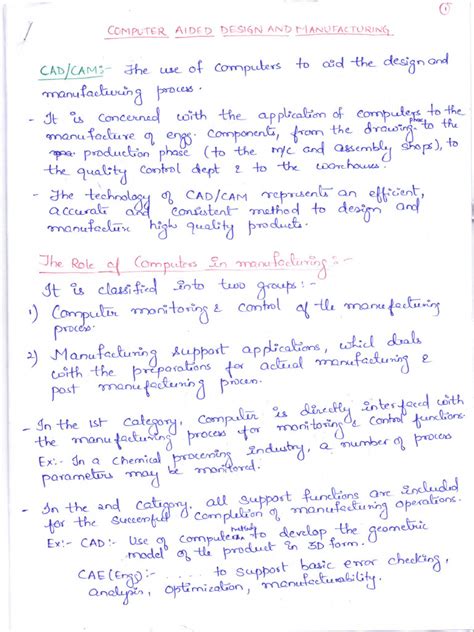 1
COMPUTER AIDED DESIGN AND MANUFACTURING
CAD/CAM:- The use of computers to aid the design and
manufacturing process.
- It is concerned with the application of computers to the
manufacture of engg. components, from the drawing phase to the
production phase (to the m/c and assembly shops), to
the quality control dept & to the warehouses.
- The technology of CAD/CAM represents an efficient,
accurate and consistent method to design and
manufacture high quality products.
The Role of Computers in manufacturing:-
It is classified into two groups:-
1) Computer monitoring & control of the manufacturing
process.
2) Manufacturing support applications, which deals
with the preparations for actual manufacturing &
post manufacturing process.
- In the 1st category, Computer is directly interfaced with
the manufacturing process for monitoring & control functions.
Ex:- In a chemical processing industry, a number of process
parameters may be monitored.
- In the 2nd category, all support functions are included
for the successful completion of manufacturing operations.
Ex:- CAD:- Use of computer to develop the geometric
model of the product in 3D form.
CAE (Engg):- ..... to support basic error checking,
analysis, optimization, manufacturability.